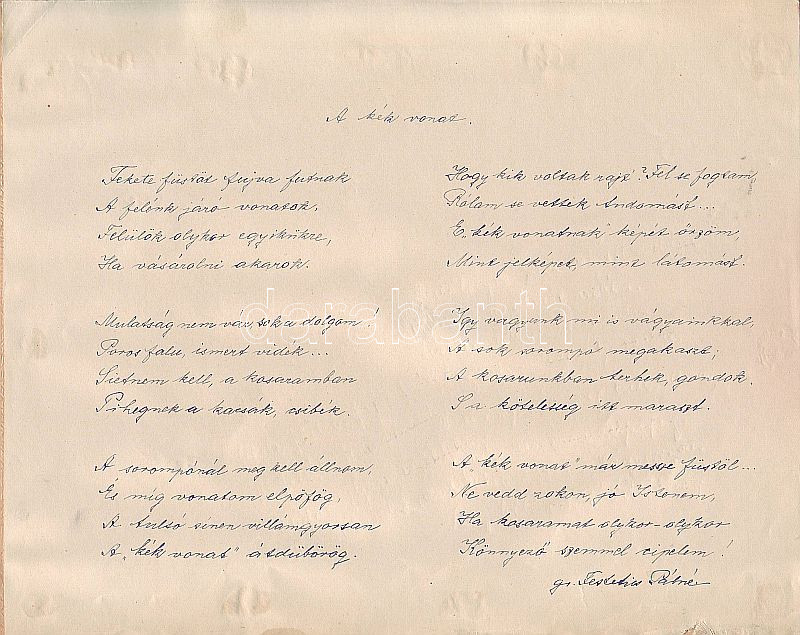 A kék vonat.
Fekete füstöt fujva futnak
A felénk járó vonatok.
Felülök olykor egyikükre,
Ha vásárolni akarok.
Mulatság nem vár, sok a dolgom!
Poros falu, ismert vidék...
Sietnem kell, a kosaramban
Pihegnek a kacsák, csibék.
A sorompónál meg kell állnom,
És míg vonatom elpöfög,
A tulsó sinen villámgyorsan
A "kék vonat" átdübörög.
Hogy kik voltak rajt'? Fel se fogtam,
Rólam se vettek tudomást...
E "kék vonatnak" képét őrzöm,
Mint jelképet, mint látomást.
Igy vagyunk mi is vágyainkkal,
A sok sorompó megakaszt;
A kosarunkban terhek, gondok.
S a kötelesség itt maraszt.
A "kék vonat" már messze füstöl...
Ne vedd zokon, jó Istenem,
Ha kosaramat olykor-olykor
Könnyező szemmel cipelem!
gr. Festetics Pálné
darabanth